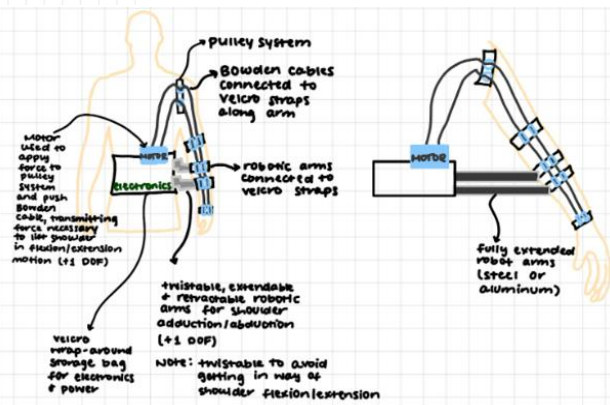 pulley system
Bowden cables
connected to
velcro straps
along arm
Motor
used to
apply
force to
pulley
system
and push
Bowden
cable, transmitting
force necessary
to lift shoulder
in flexion/extension
motion (+1 DOF)
MOTOR
electronics
robotic arms
connected to
velcro straps
twistable, extendable
& retractable robotic
arms for shoulder
adduction/abduction
(+1 DOF)
Note: twistable to avoid
getting in way of
shoulder flexion/extension
velcro
wrap-around
storage bag
for electronics
& power
MOTOR
fully extended
robot arms
(steel or
aluminum)